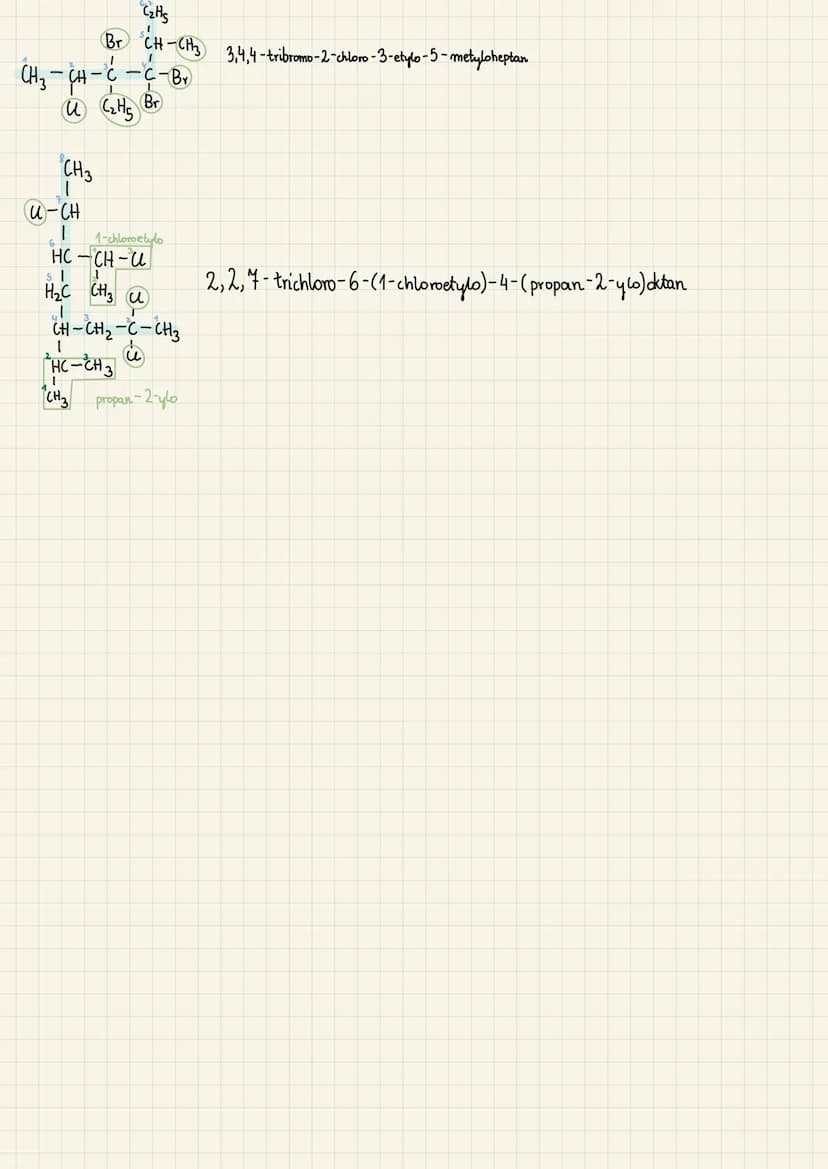 C₂H₅
Br CH-CH₃
CH₃-CH-C-C-Br
Cl C₂H₅ Br
3,4,4-tribromo-2-chloro-3-etylo-5-metyloheptan
8 CH₃
7 Cl-CH
1-chloroetylo
6 HC-CH-Cl
5 H₂C CH₃ Cl
4 CH-3 CH₂-2 C-1 CH₃
Cl
2 HC-3 CH₃
1 CH₃ propan-2-ylo
2,2,7-trichloro-6-(1-chloroetylo)-4-(propan-2-ylo)oktan